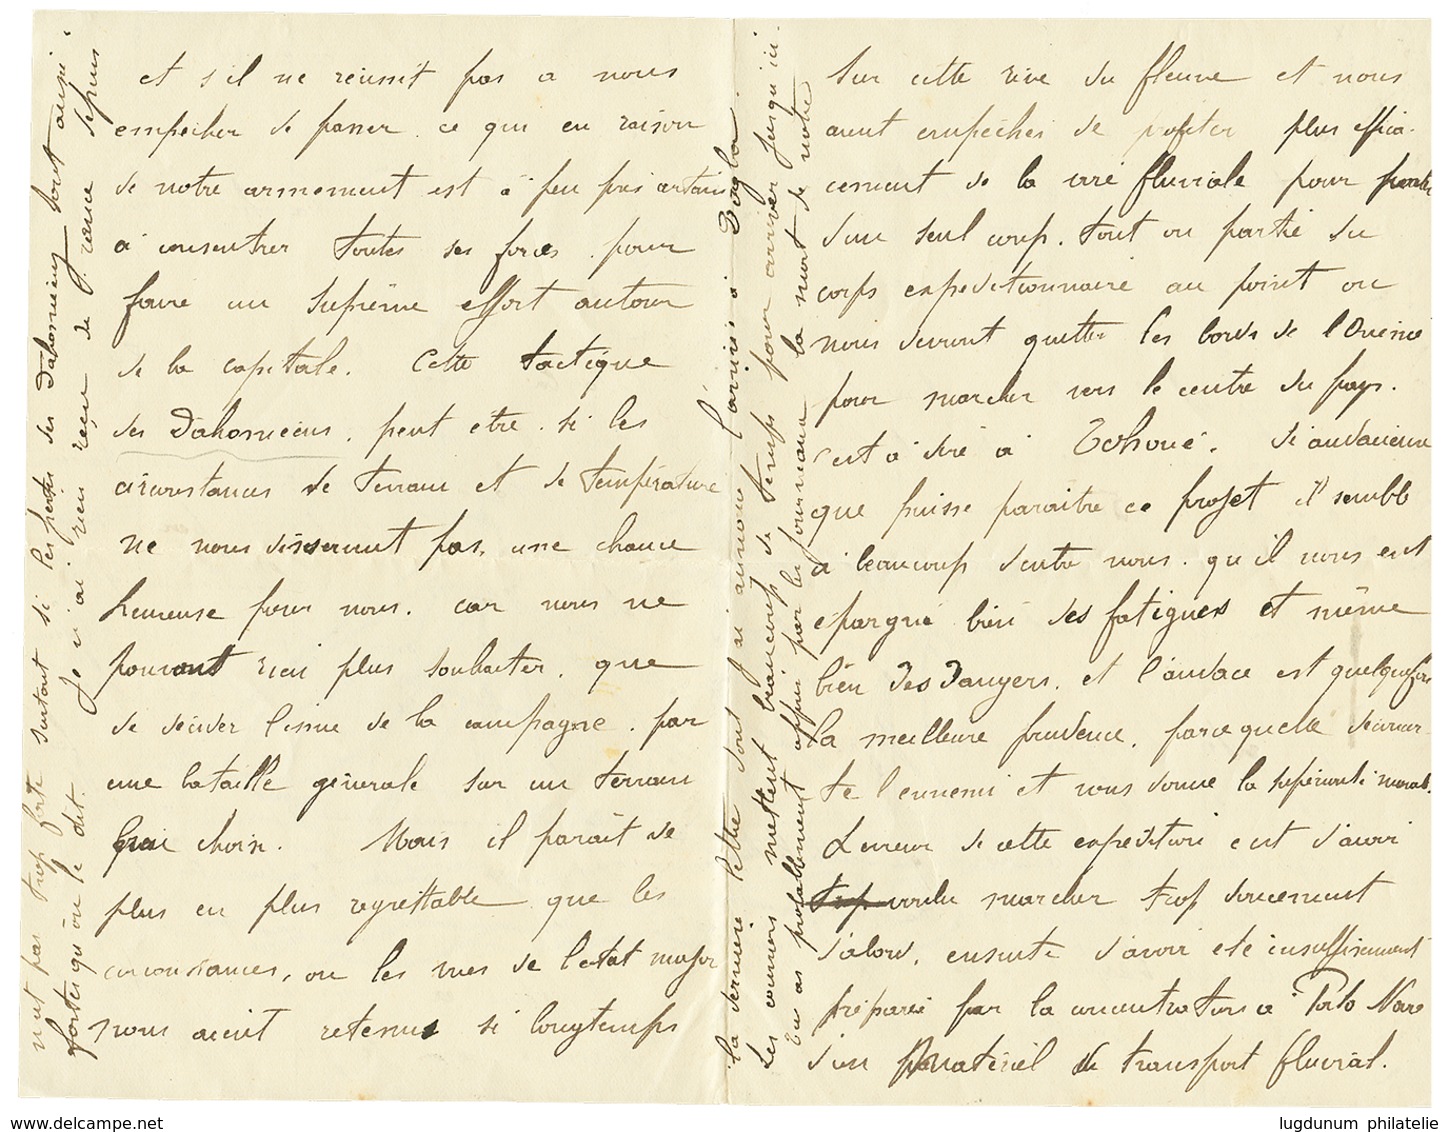 et s'il ne réussit pas a nous
empêcher de passer. ce qui en raison
de notre armement est à peu près certain
à concentrer toutes ses forces. pour
faire un suprême effort autour
de la capitale. Cette tactique
des Dahoméens. peut etre. si les
circonstances de terrain et de température
ne nous desservent pas. une chance
heureuse pour nous. car nous ne
pouvons rien plus souhaiter. que
de décider l'issue de la campagne. par
une bataille générale sur un terrain
choisi. Mais il parait de
plus en plus regrettable que les
circonstances, ou les vues de l'etat major
nous aient retenus si longtemps
sur cette rive du fleuve et nous
aient empêchés de profiter plus effica-
cement de la voie fluviale pour porter
d'un seul coup. tout ou partie du
corps expeditionnaire au point ou
nous devrons quitter les bords de l'Ouémé
pour marcher vers le centre du pays.
c'est à dire à Tohoué. Si audacieux
que puisse paraitre ce projet il semble
à beaucoup d'entre nous. qu'il nous eut
épargné bien des fatigues et même
bien des dangers. et l'audace est quelquefois
la meilleure prudence. parce qu'elle déconcer-
te l'ennemi et vous donne la supériorité morale.
L'erreur de cette expédition est d'avoir
trop voulu marcher trop doucement
d'abord, ensuite d'avoir été insuffisamment
préparée par la concentration à Porto Novo
d'un matériel de transport fluvial.
n'est pas trop forte surtout si les pertes des Dahoméens sont aussi
fortes qu'on le dit. Je n'ai rien reçu de France depuis
la dernière lettre dont je t'ai annoncé l'arrivée à Dogba.
Les courriers mettent beaucoup de temps pour arriver jusqu'ici.
Tu as probablement appris par les journaux la mort de notre
lugdunum philatelie